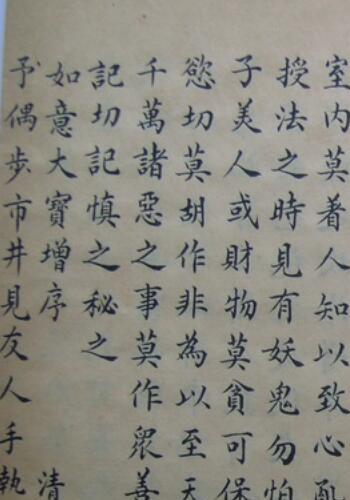 室內莫著人知以致心亂
授法之時見有妖鬼勿怕
子美人或財物莫貪可保
慾切莫胡作非為以至天
千萬諸惡之事莫作眾善
記切記慎之秘之
如意大寶增序 清
予偶步市井見友人手執